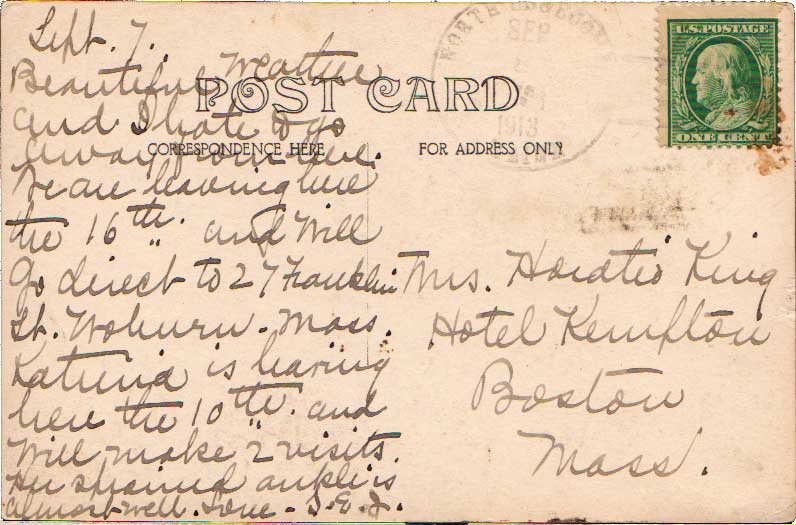 Sept. 7.
Beautiful weather
and I hate to go
away from here.
We are leaving here
the 16th. and Will
go direct to 27 Franklin
St. Woburn - Mass.
Katrina is leaving
here the 10th. and
will make 2 visits.
Her sprained ankle is
almost well. Love - S. E. J.
POST CARD
CORRESPONDENCE HERE
FOR ADDRESS ONLY
NORTH
SEP
1913
U.S. POSTAGE
ONE CENT
Mrs. Horatio King
Hotel Kempton
Boston
Mass.